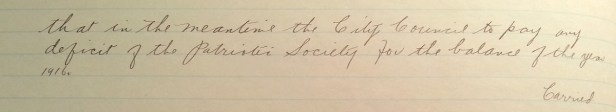 that in the meantime the City Council to pay any
deficit of the Patriotic Society for the balance of the year
1916.
Carried